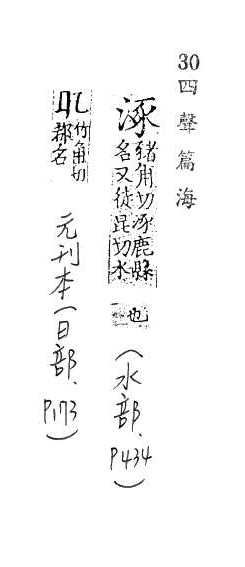 30四聲篇海
涿
豬角切涿鹿縣
名又徒昆切水
也
（水部、P434）
竹角切
郡名
元刊本（日部、P173）